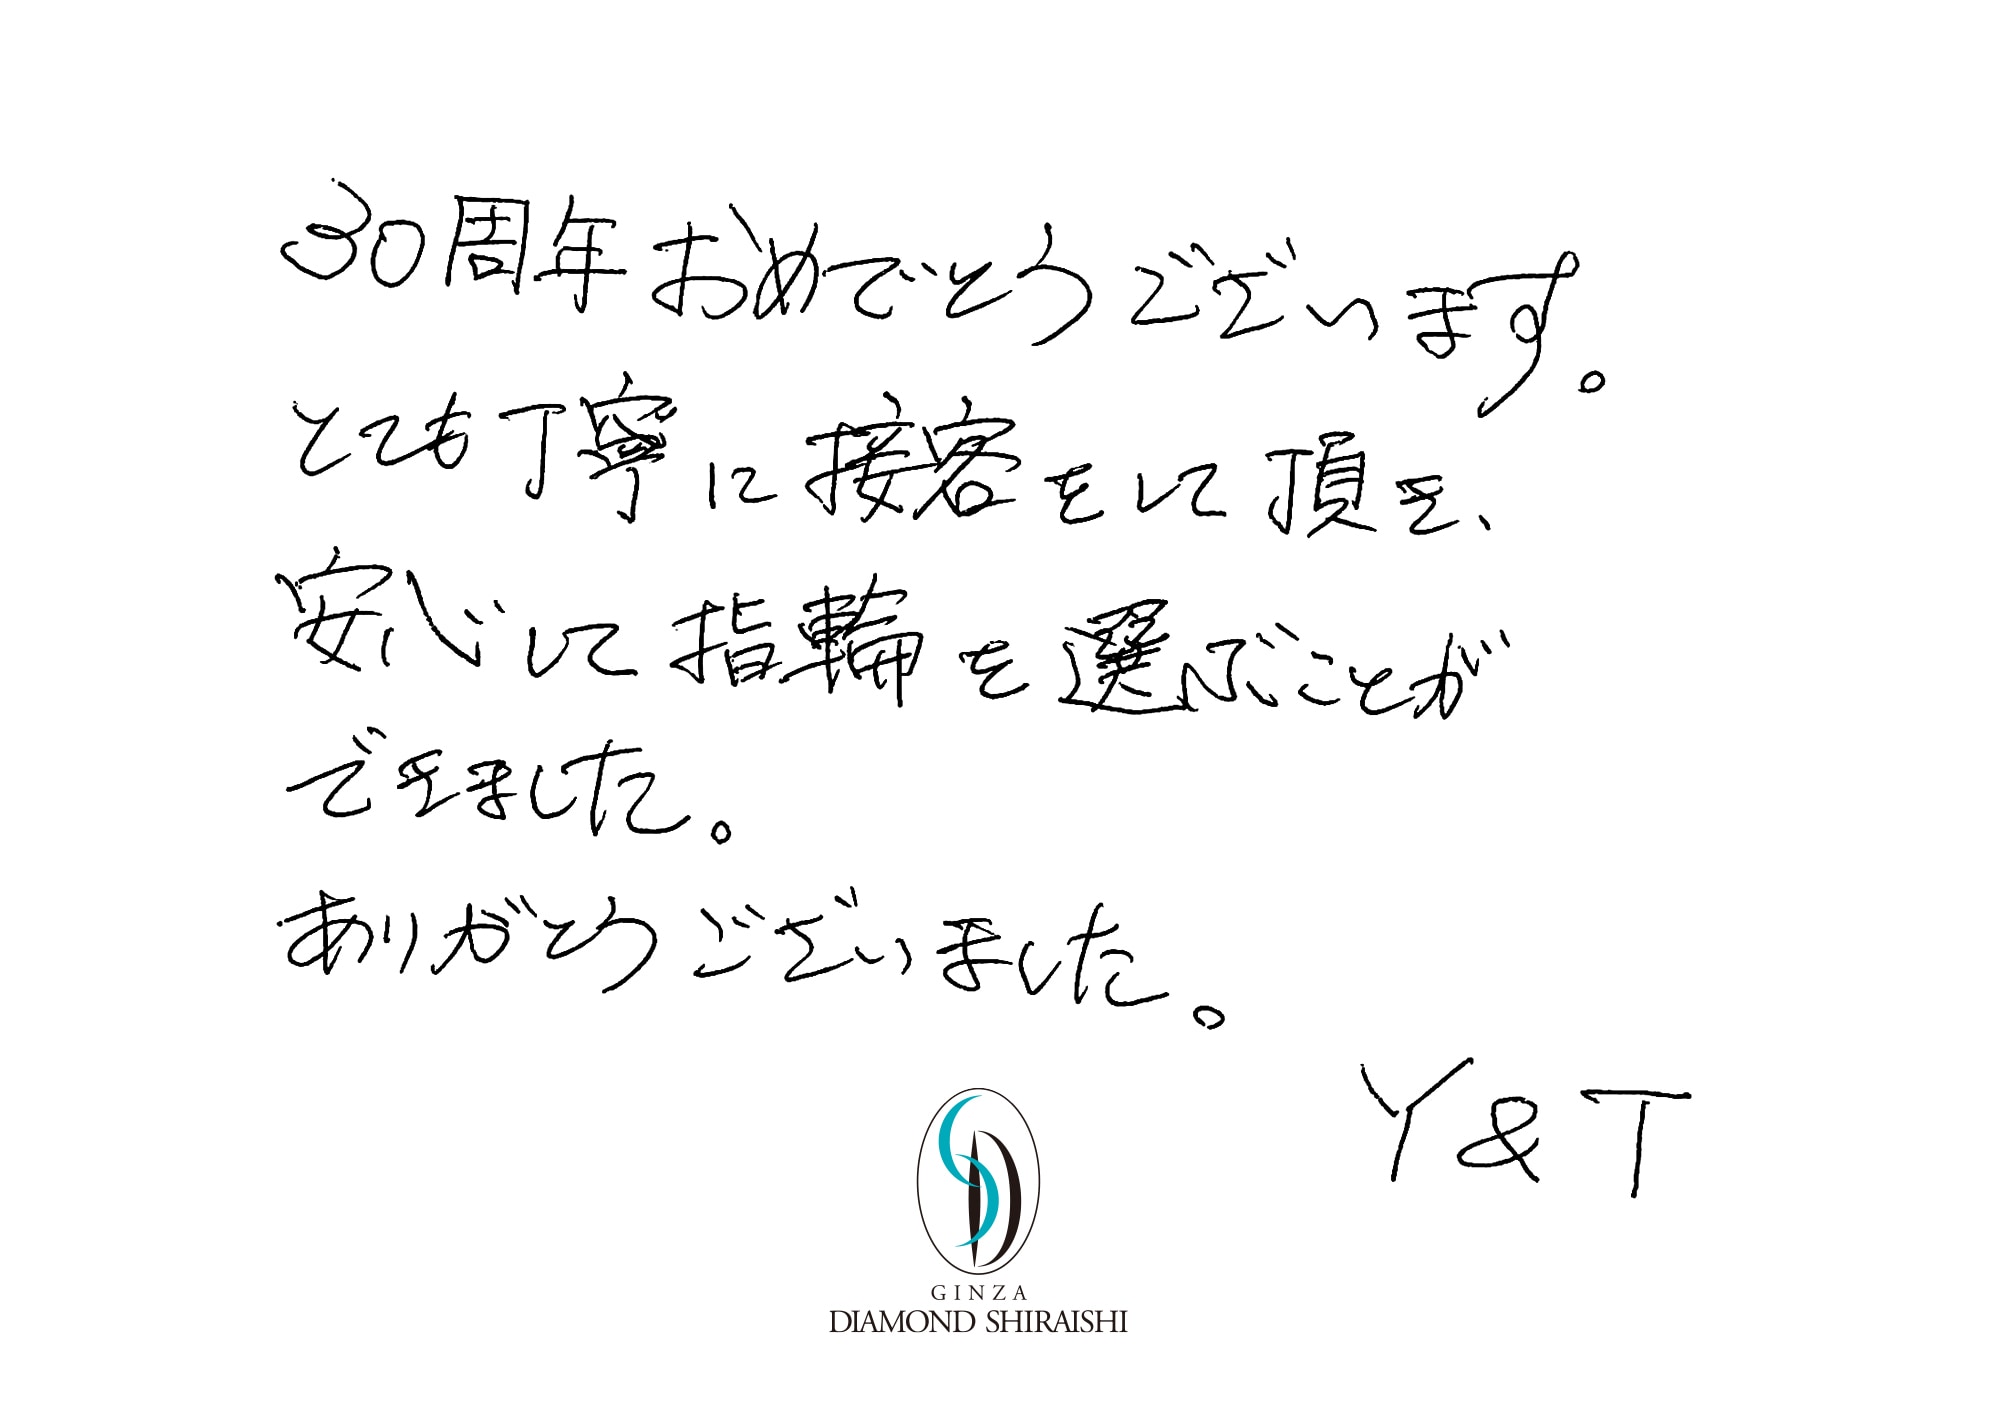 30周年おめでとうございます。
とても丁寧に接客をして頂き、
安心して指輪を選ぶことが
できました。
ありがとうございました。
Y&T
GINZA
DIAMOND SHIRAISHI